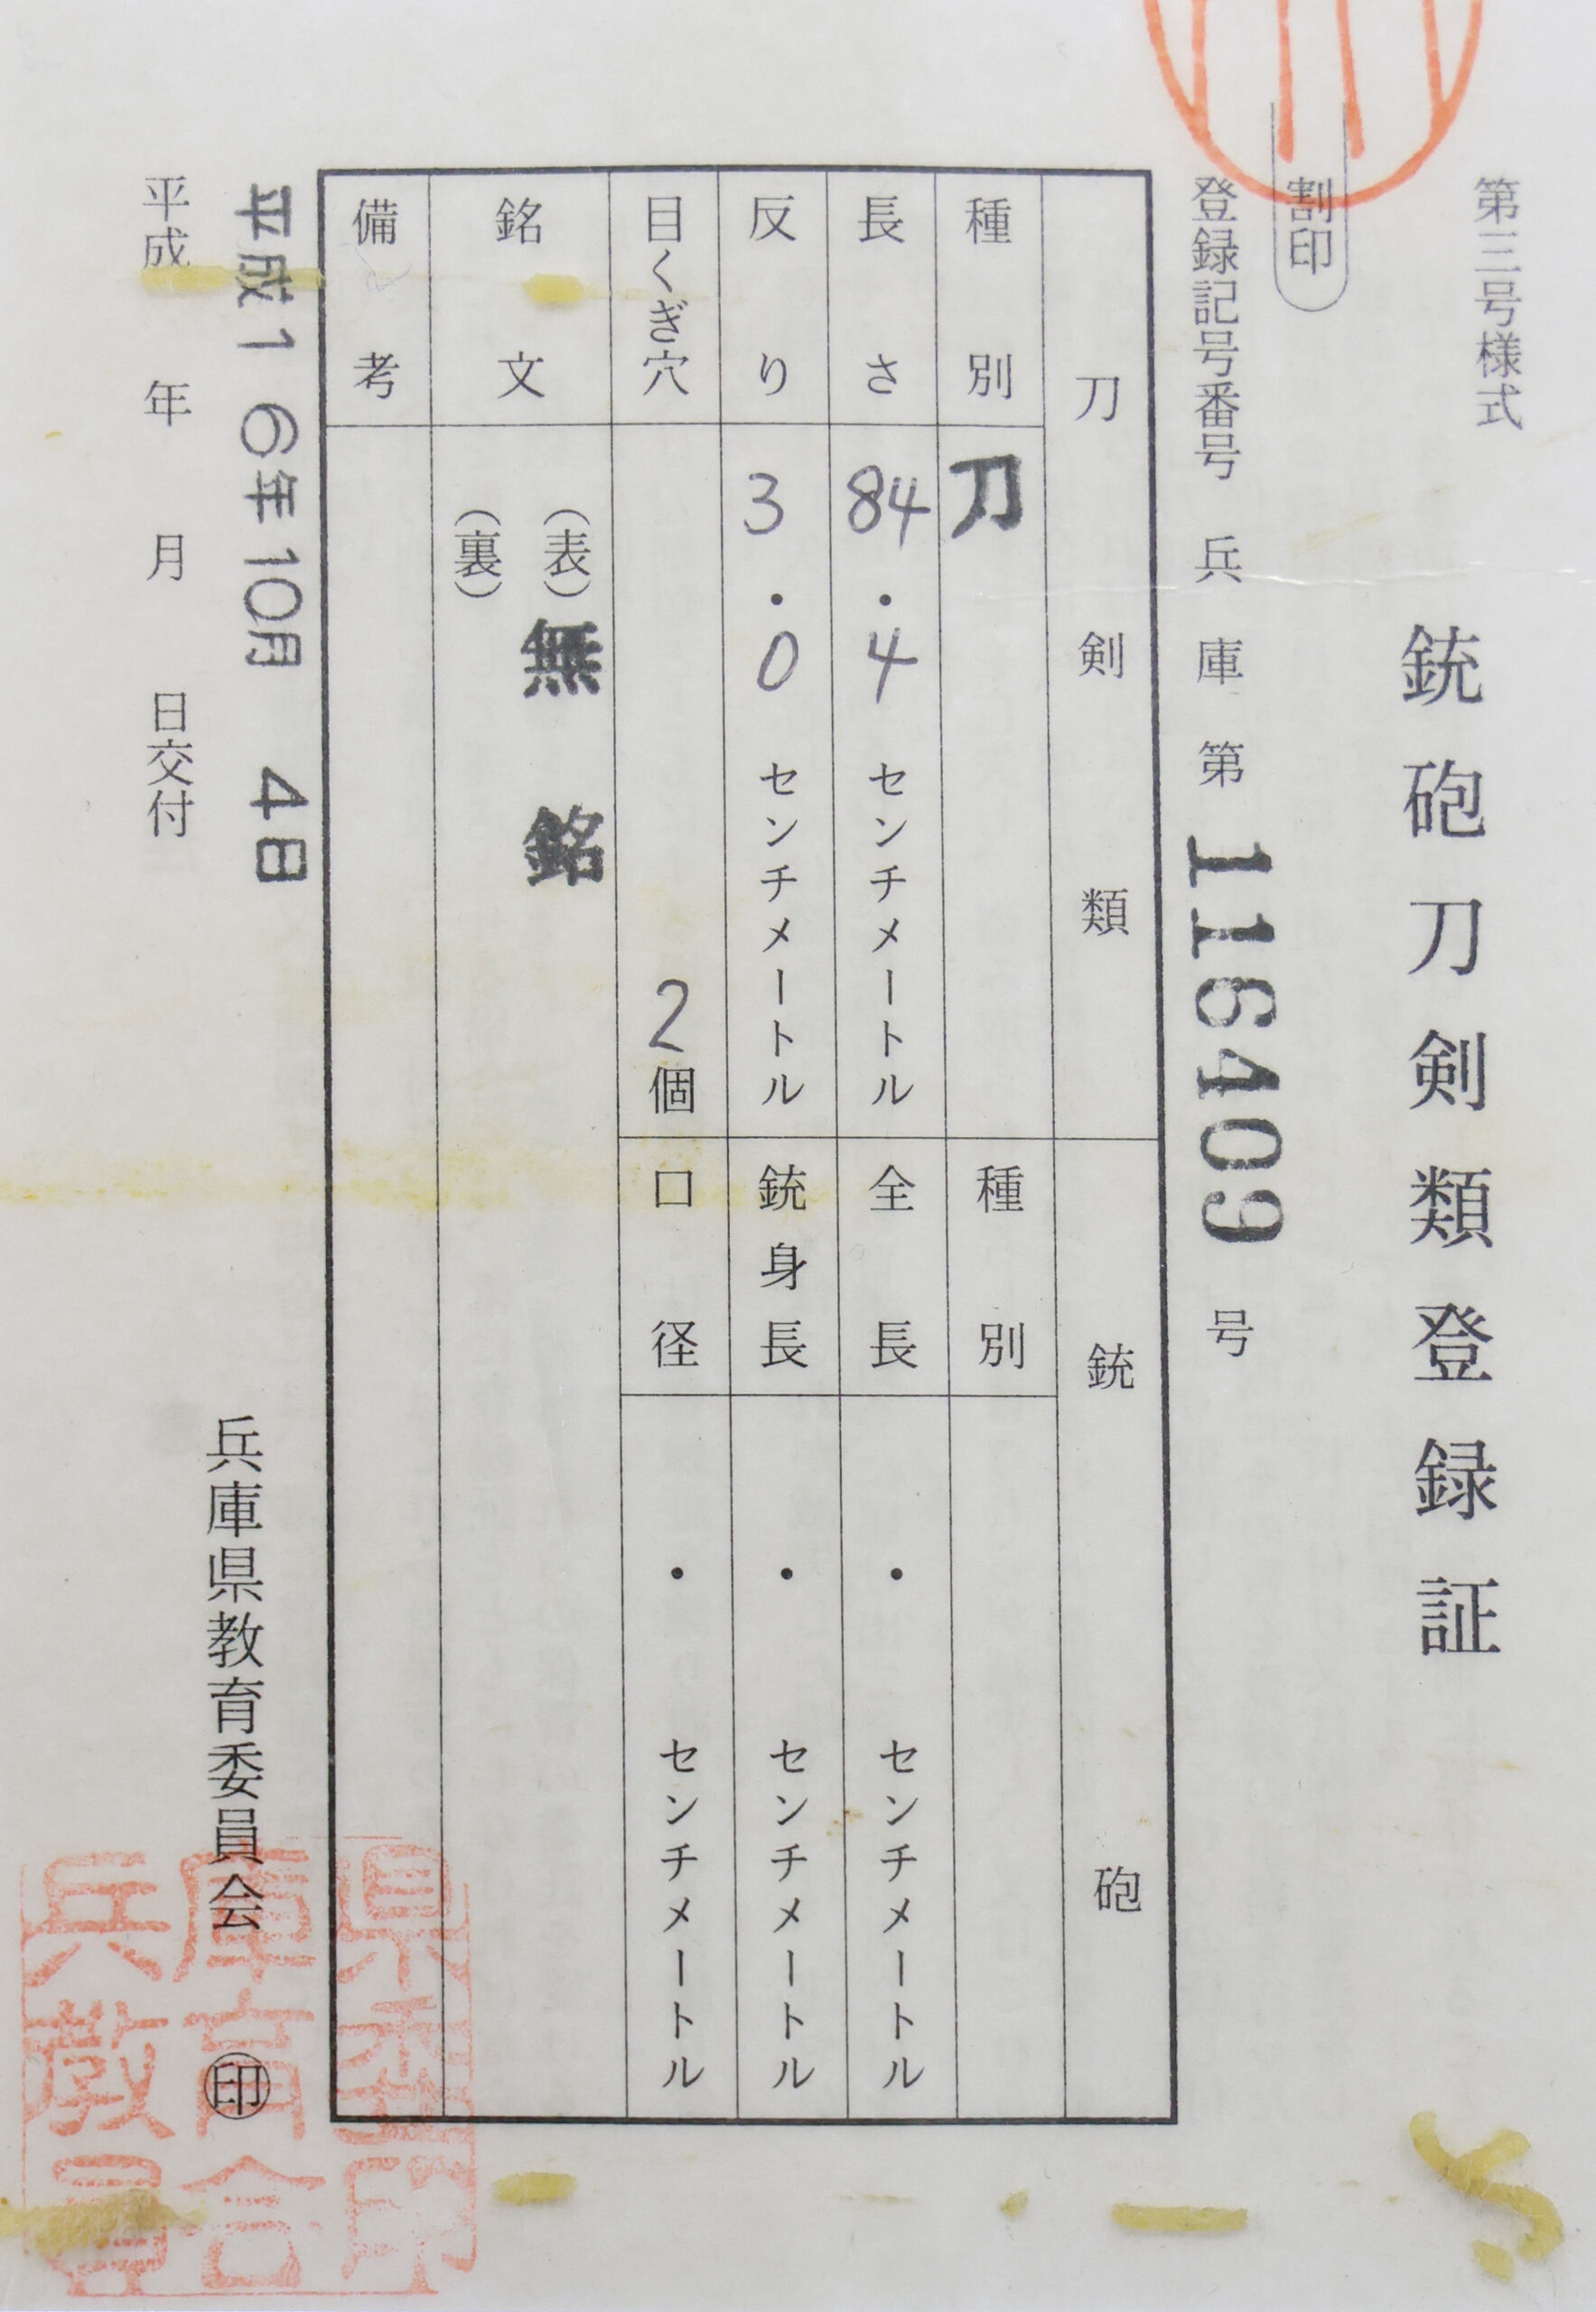 第三号様式
銃砲刀剣類登録証
割印
登録記号番号 兵庫第 116409 号
刀剣類
銃砲
種別 刀
種別
長さ 84.4 センチメートル
全長 ・ センチメートル
反り 3.0 センチメートル
銃身長 ・ センチメートル
目くぎ穴 2個
口径 ・ センチメートル
銘文
(表) 無銘
(裏)
備考
平成16年10月 4日
平成 年 月 日交付
兵庫県教育委員会 ㊞
兵庫県教育委員会印